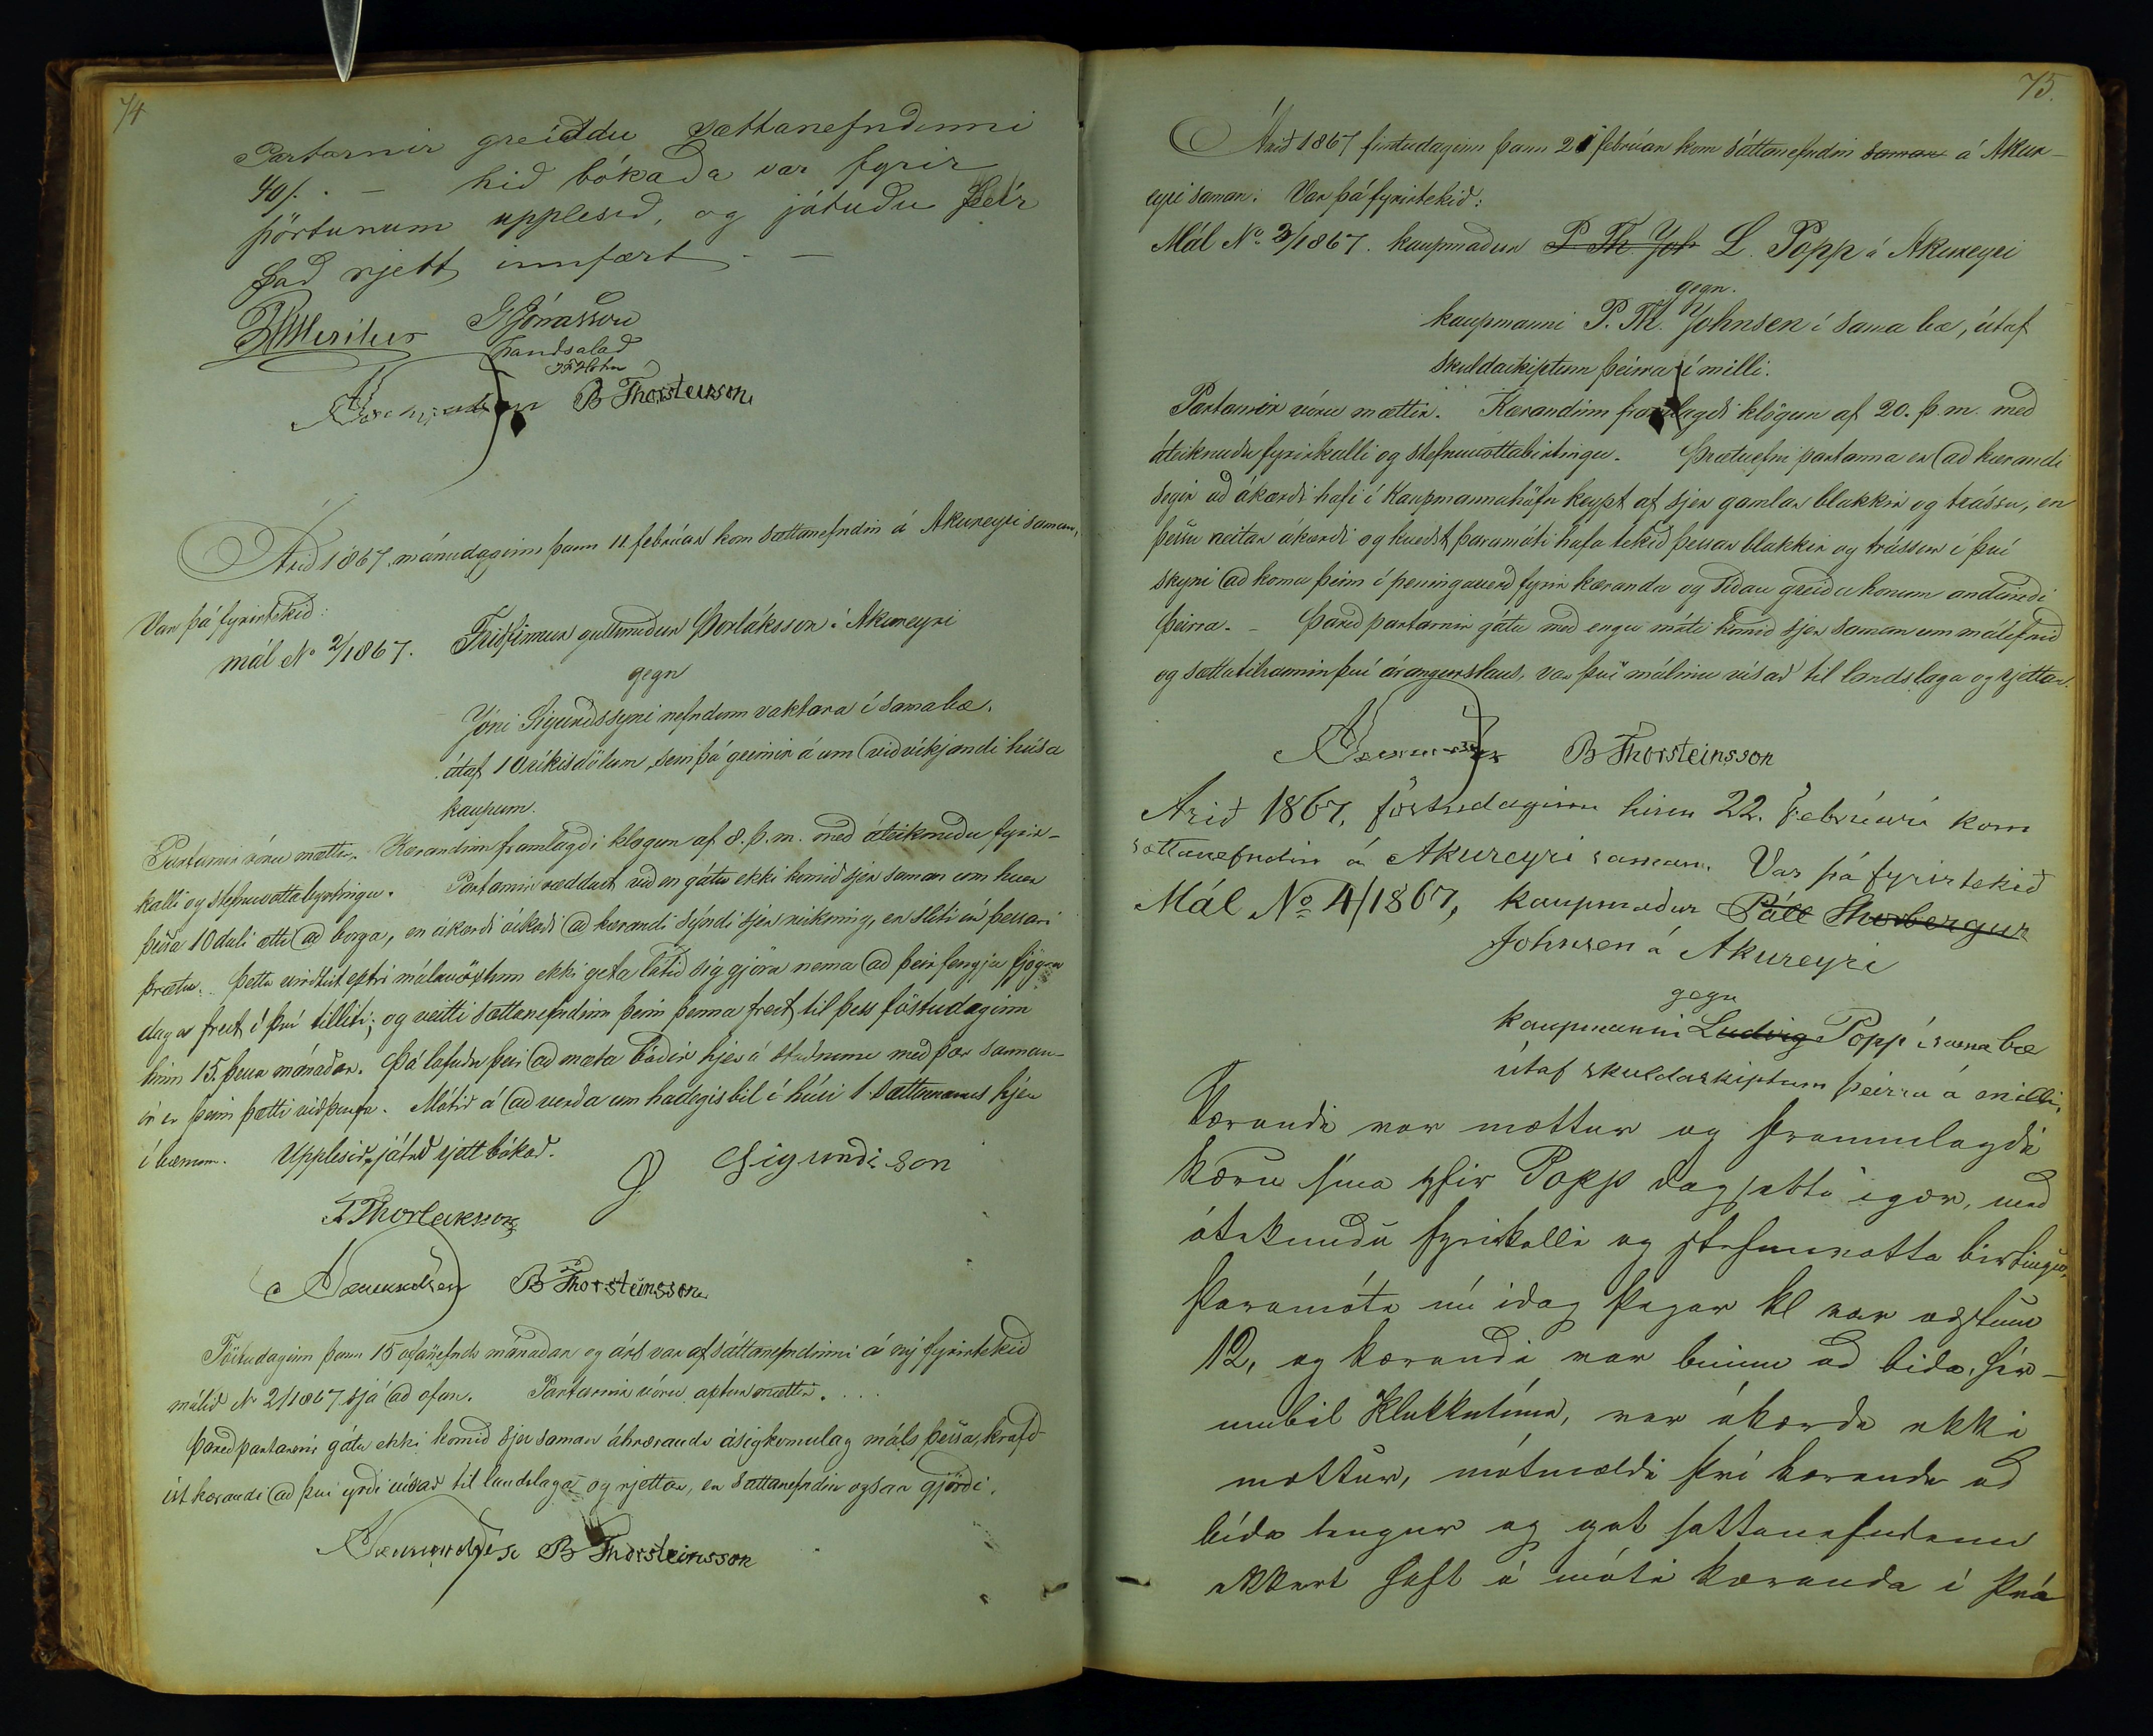 74
Partarnir greiddu sættanefndinni
40/. – hið bókaða var fyrir
pörtunum upplesið, og játuðu þeir
það rjett innfært. –
Jónasson
handsalað
B Thorsteinsson
Árið 1867, mánudaginn þann 11. febrúar kom sættanefndin á Akureyri saman,
Var þá fyrirtekið:
mál No 2/1867. Friðfinnur gullsmiður Þorláksson á Akureyri
gegn
Jóni Sigurðssyni nefndum vaktara í sama bæ,
útaf 10 ríkisdölum, sem þá greinir á um viðvíkjandi húsa
kaupum.
Partarnir vóru mættir. Kærandinn framlagði klögun af 8. þ.m. með áteiknuðu fyrir-
kalli og stefnuvottabyrtingu. Partarnir ræddust við en gátu ekki komið sjer saman um hver
þessa 10 dali ætti að borga, en ákærði áskoði að kærandi sýndi sjer reikning, er sliti úr þessari
þrætu. Þetta virðtist eptir málavöxtum ekki geta látið sig gjöra nema að þeir fengju fjögra
daga frest í því tilliti; og veitti sættanefndin þeim þenna frest til þess föstudaginn
hinn 15. þessa mánaðar. Þá lofuðu þeir að mæta báðir hjer á staðnum með þær sannan-
ir er þeim þætti við þurfa. Mótið á að verða um hádegisbil í húsi 1. sættamanns hjer
í bænum. Upplesið, játað rjett bókað.
J Sigurdsson
F Thorlaksson
B Thorsteinsson
Föstudaginn þann 15 ofannefnds mánaðar og árs var af sáttanefndinni á ný fyrirtekið
málið No 2/1867 sjá að ofan. Partarnir vóru aptur mættir. . . .
Þareð partarnir gátu ekki komið sjer saman áhrærandi ásigkomulag máls þessa, krafð-
ist kærandi að því yrði vísað til landslaga og rjettar, er sættanefndin og svo gjörði.
B Thorsteinsson
75.
Árið 1867 fimtudaginn þann 21 febrúar kom sáttanefndin saman á Akur-
eyri saman. Var þá fyrirtekið:
Mál No 3/1867. kaupmaður P. Th. Joh L. Popp á Akureyri
gegn.
kaupmanni P. Th. Johnsen í sama bæ, útaf
skuldaskiptum þeirra í milli.
Partarnir vóru mættir. Kærandinn framlagði klögun af 20. þ.m. með
áteiknuðu fyrirkalli og stefnuvottabirtingu. Þrætuefni partanna er að kærandi
segir að ákærði hafi í Kaupmannahöfn keypt af sjer gamlar blakkir og trássu, en
þessu neitar ákærði og kveðst þarámóti hafa tekið þessar blakkir og trássur í því
skyni að koma þeim í peningaverð fyrir kæranda og síðan greiða honum andvirði
þeirra. – Þareð partarnir gátu með engu móti komið sjer saman um málefnið
og sættatilraunin því árangurslaus, var því málinu vísað til landslaga og rjettar.
B Thorsteinsson
Arið 1867, föstudaginn hinn 22. Februarii kom
sættanefndin á Akureyri saman. Var þá fyrirtekið
Mál No 4/1867, kaupmadur Páll Thorbergur
Johnsen á Akureyri
gegn
kaupmanni Ludvig Popp í sama bæ
útaf skuldaskiptum þeirra á milli.
Kærandi var mættur og frammlagdi
kæru sína yfir Popp dagsetta igær, med
áteknudu fyrikalli og stefnuvotta birtingu,
Þaramóti nú idag þegar kl var ordin
12, og kærandi var buinn ad bida, hér-
umbil Klukkutima, var ákærdi ekki
mættur, mótmælti því kærandi ad
bida lengur og gat sattanefndinn
ekkert haft á móti kæranda í því